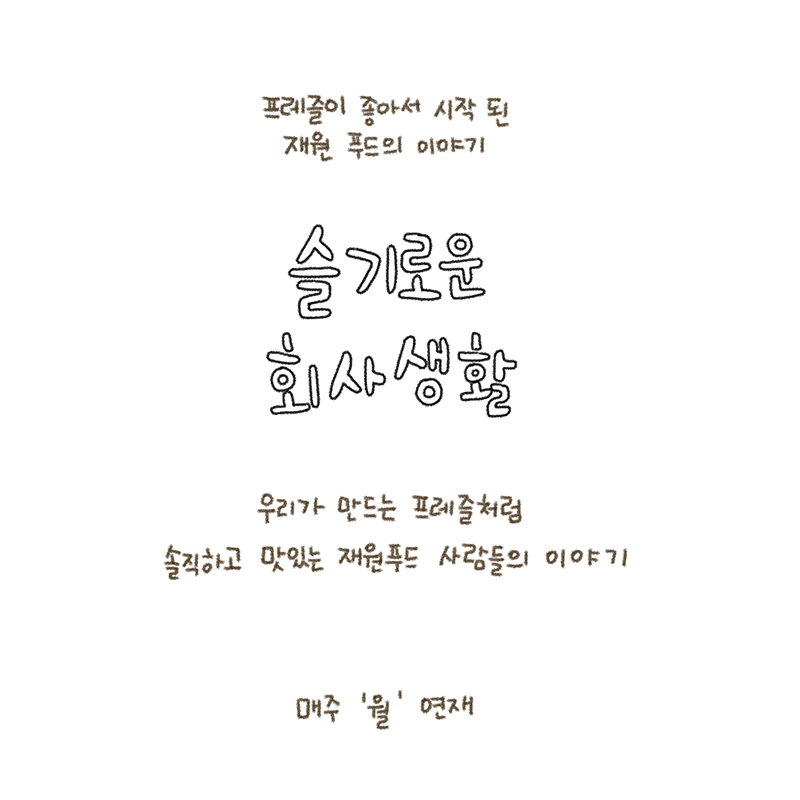 프레즐이 좋아서 시작 된
재원 푸드의 이야기
슬기로운
회사생활
우리가 만드는 프레즐처럼
솔직하고 맛있는 재원푸드 사람들의 이야기
매주 '월' 연재